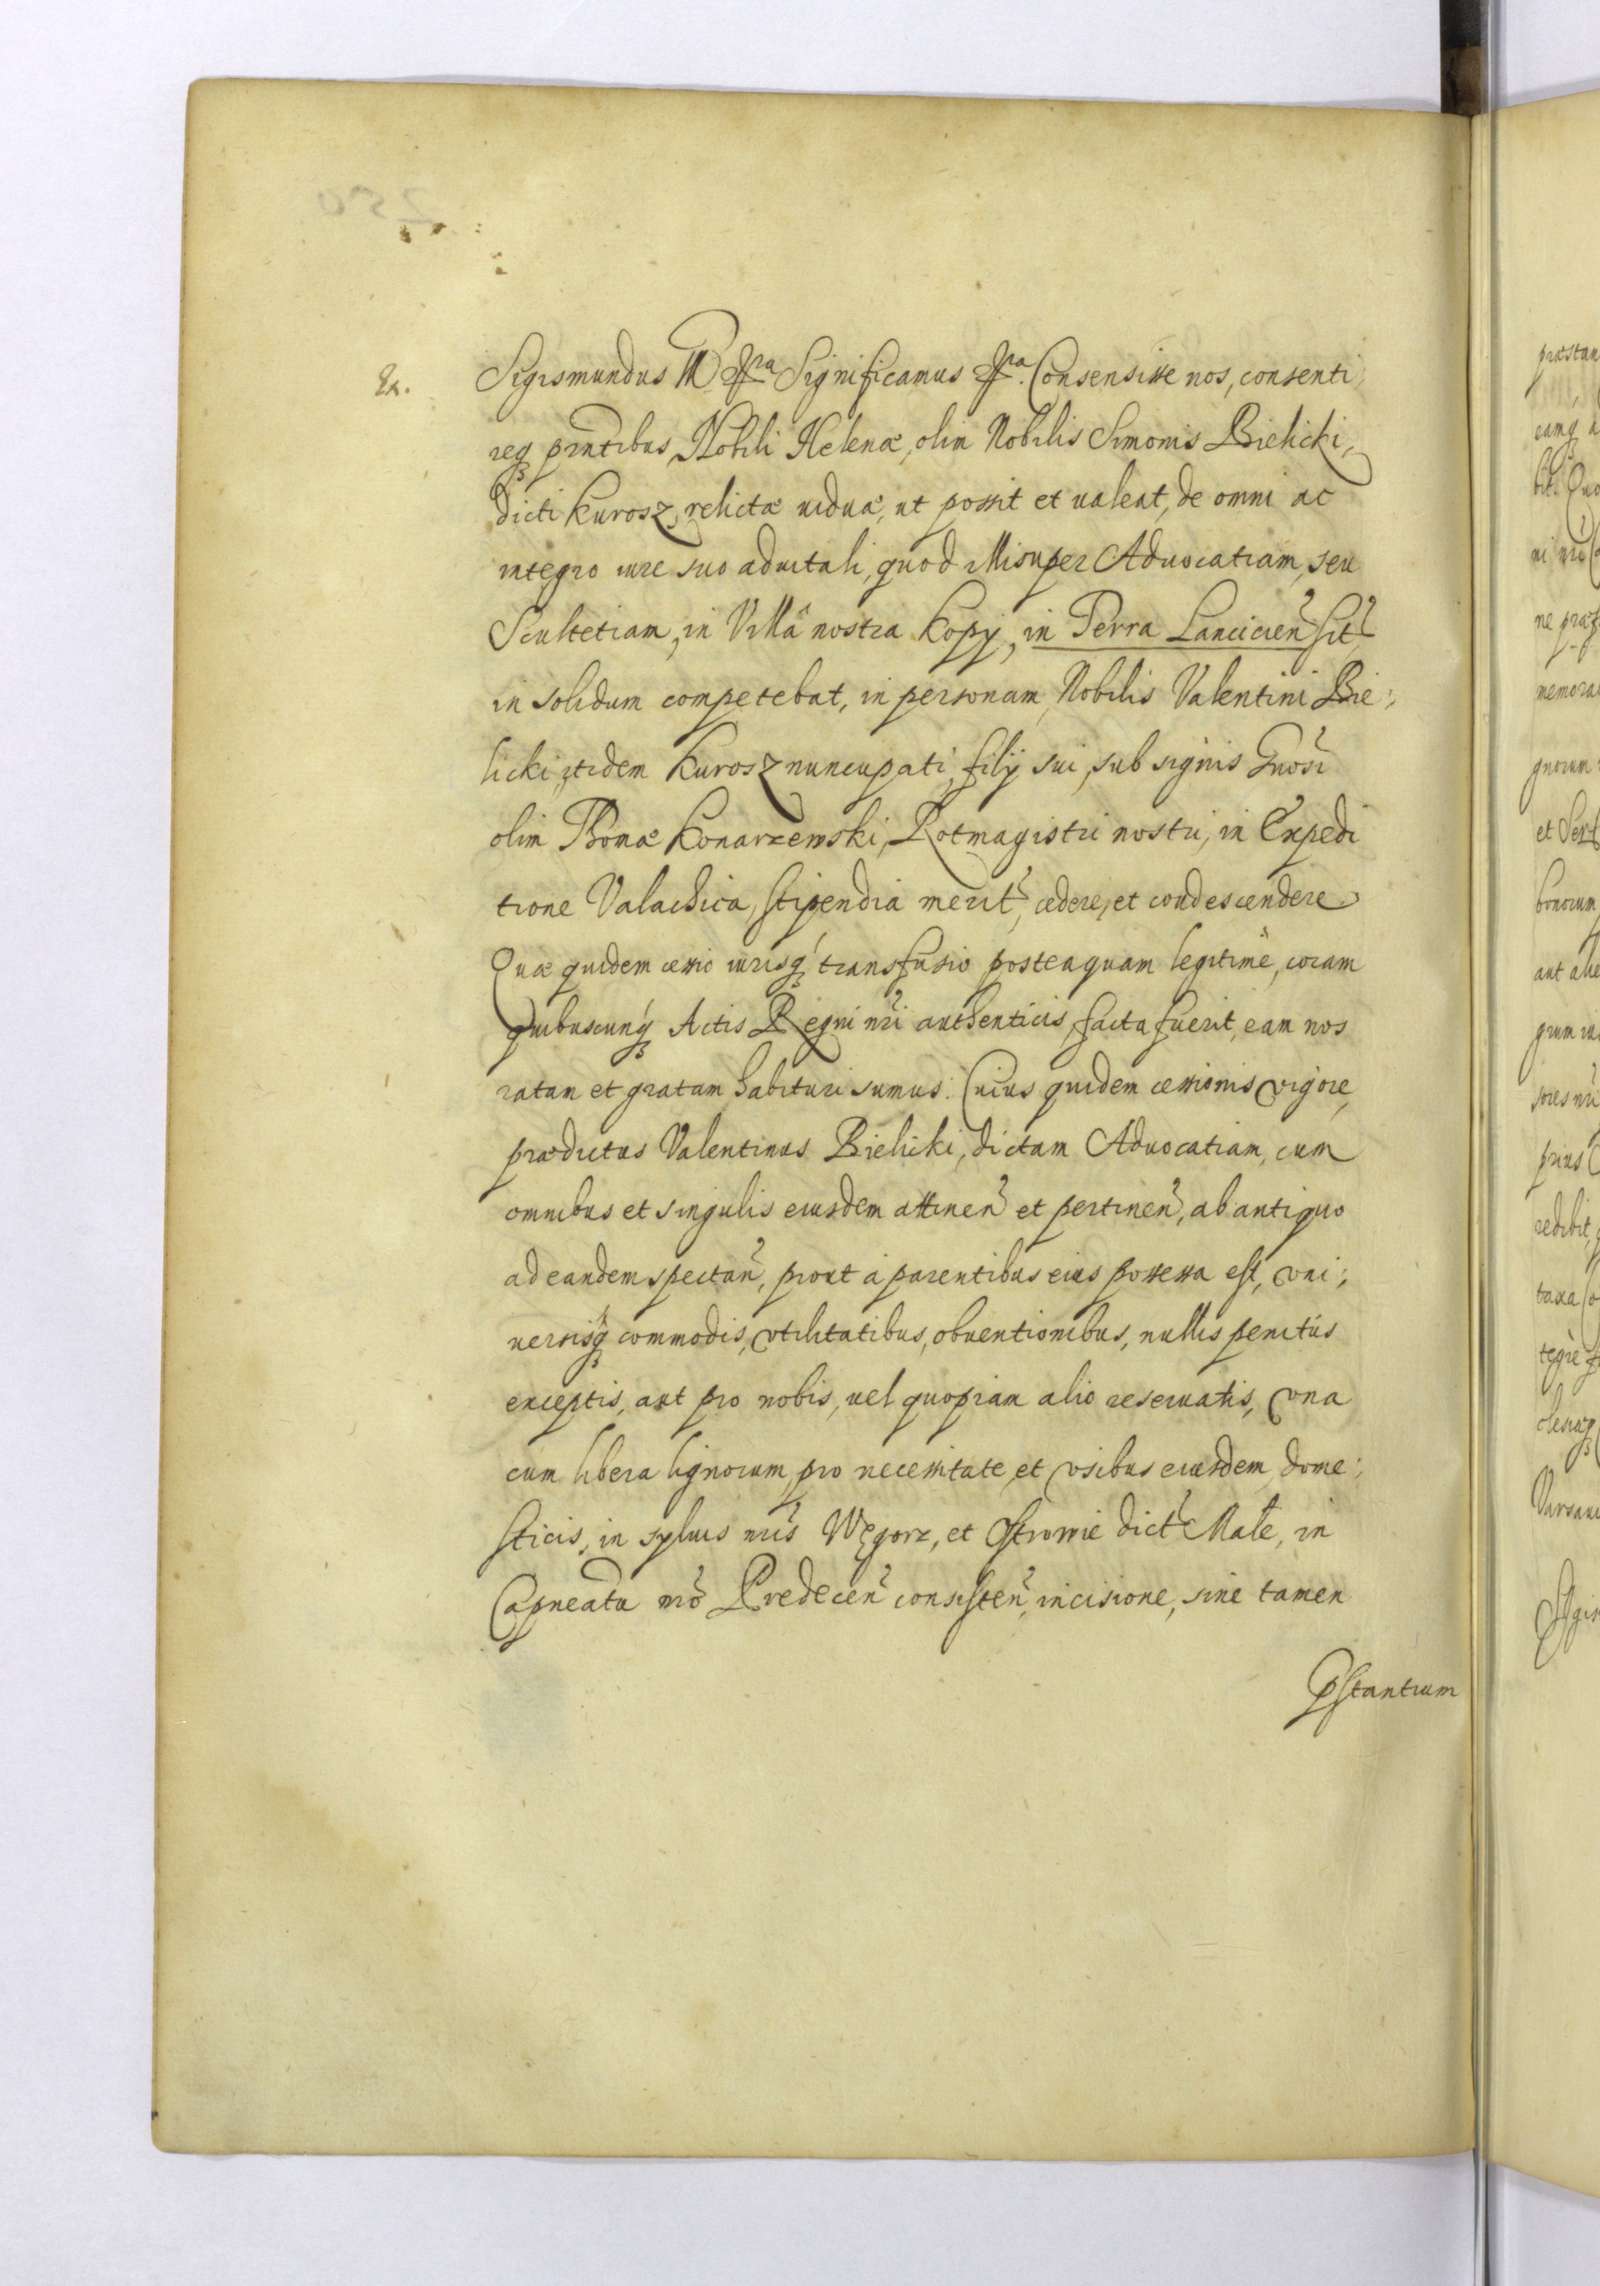 Ex.
Sigismundus III etc. Significamus etc. Consensisse nos, consenti,
req3 pntibus, Nobili Helenæ, olim Nobilis Simonis Bielicki,
dicti Kurosz, relictæ uiduæ, ut possit et ualeat, de omni ac
integro iure suo aduitali, quod illi super Aduocatiam, seu
Scultetiam, in Villâ nostra Kopy, in Terra Lancicien sit
in solidum competebat, in personam, Nobilis Valentini Bie:
licki, itidem Kurosz nuncupati, filij sui, sub signis Gnosi
olim Thomæ Konarzewski, Rotmagistri nostri, in Expedi
tione Valachica, stipendia merit, cedere, et condescendere
Quæ quidem cessio iurisq3 transfusio posteaquam legitimè, coram
quibuscunq3 Actis Regni nri authenticis, facta fuerit, eam nos
ratam et gratam habituri sumus. Cuius quidem cessionis vigore,
prædictus Valentinus Bielicki, dictam Aduocatiam, cum
omnibus et singulis eiusdem attinen et pertinen, ab antiquo
ad eandem spectan, prout à parentibus eius possessa est, vni:
uersisq3 commodis, vtilitatibus, obuentionibus, nullis penitùs
exceptis, aut pro nobis, uel quopiam alio reseruatis, vna
cum libera lignorum, pro necessitate, et vsibus eiusdem, dome:
sticis, in syluis nris Węgorz, et Ostrowie dict Małe, in
Capneatu nro Predecen consisten, incisione, sine tamen
pstantium